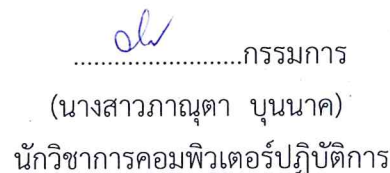 ........................กรรมการ
(นางสาวภาณุตา บุนนาค)
นักวิชาการคอมพิวเตอร์ปฏิบัติการ